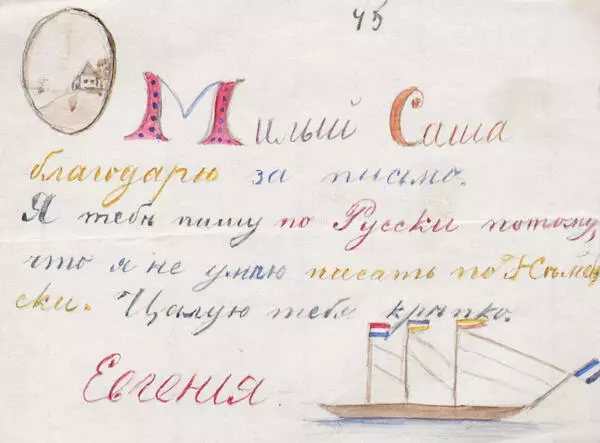 45
Милый Саша
благодарю за письмо.
Я тебѣ пишу по Русски потому,
что я не умѣю писать по Нѣмец
ски. Цалую тебя крѣпко.
Евгенія